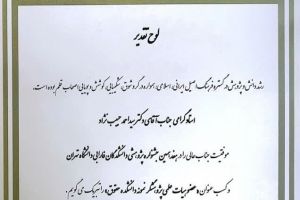 لوح تقدیر
رشد دانش و پژوهش در گستره فرهنگ اصیل ایرانی، اسلامی، همواره در گرو شوق، شکیبایی، کوشش و پویایی اصحاب قلم بوده است.
استاد گرامی جناب آقای دکتر سید احمد حبیب نژاد
موفقیت جناب عالی را در هفدهمین جشنواره پژوهشی دانشکدگان فارابی دانشگاه تهران
و کسب عنوان «عضو هیات علمی پژوهشگر نمونه دانشکده حقوق» را تبریک می گوییم.